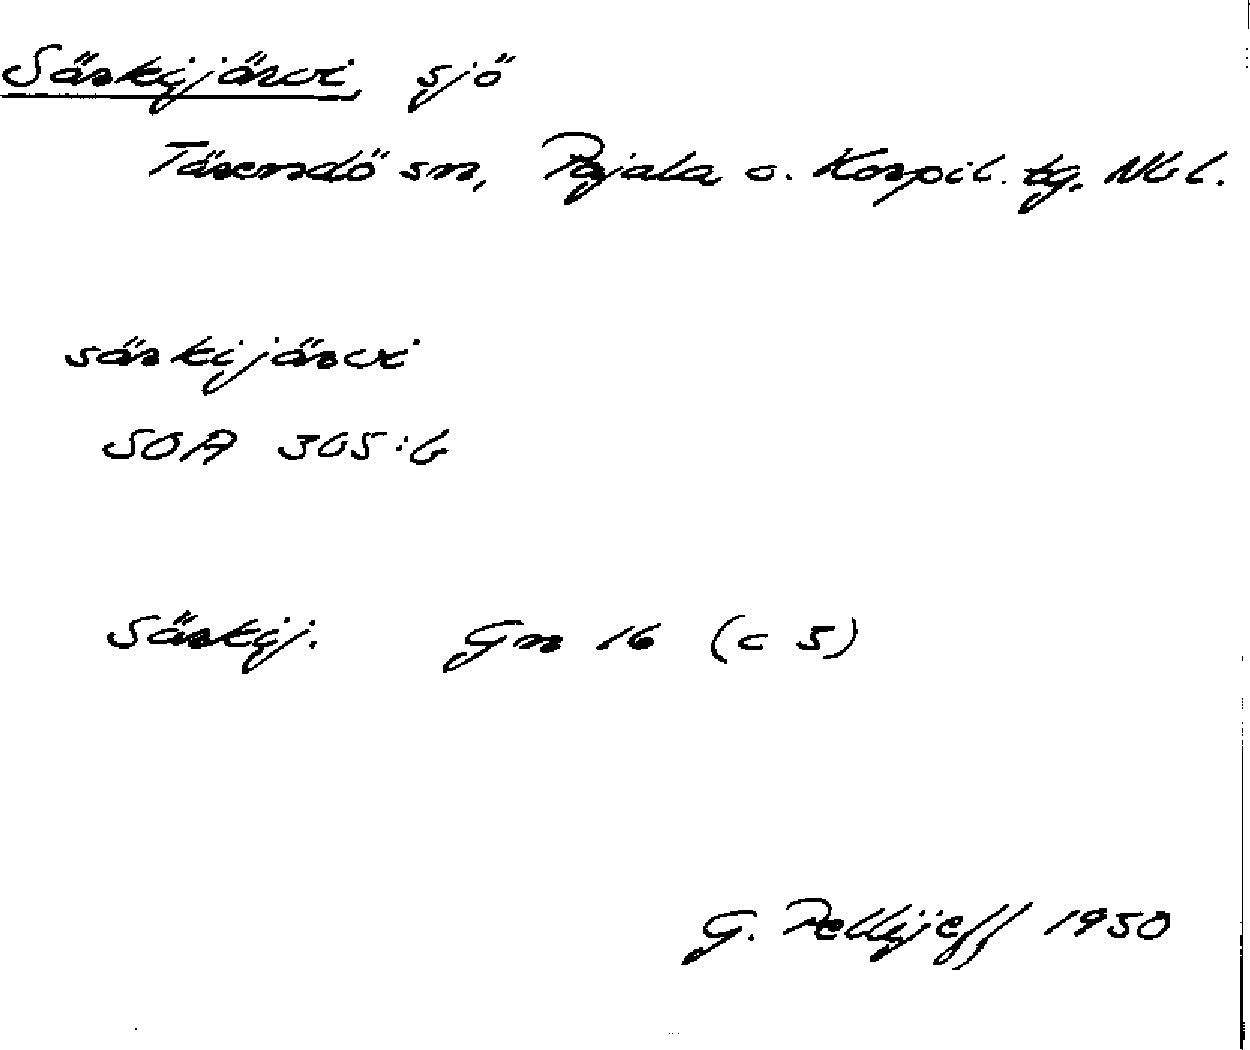 Särkijärvi sjö
Tärendö sn, Pajala o. Korpil. tg. Nbl.
särkijärvi
SOA 305:6
Särkij. Gn 16 (c 5)
G. Pellijeff 1950